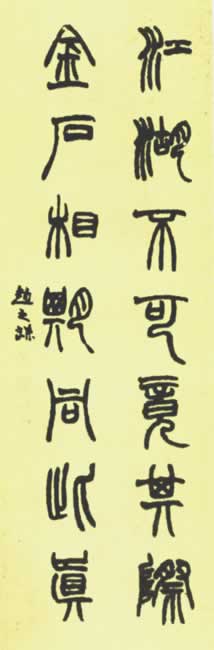 江湖不可竟其際
金石相期同此眞
趙之謙